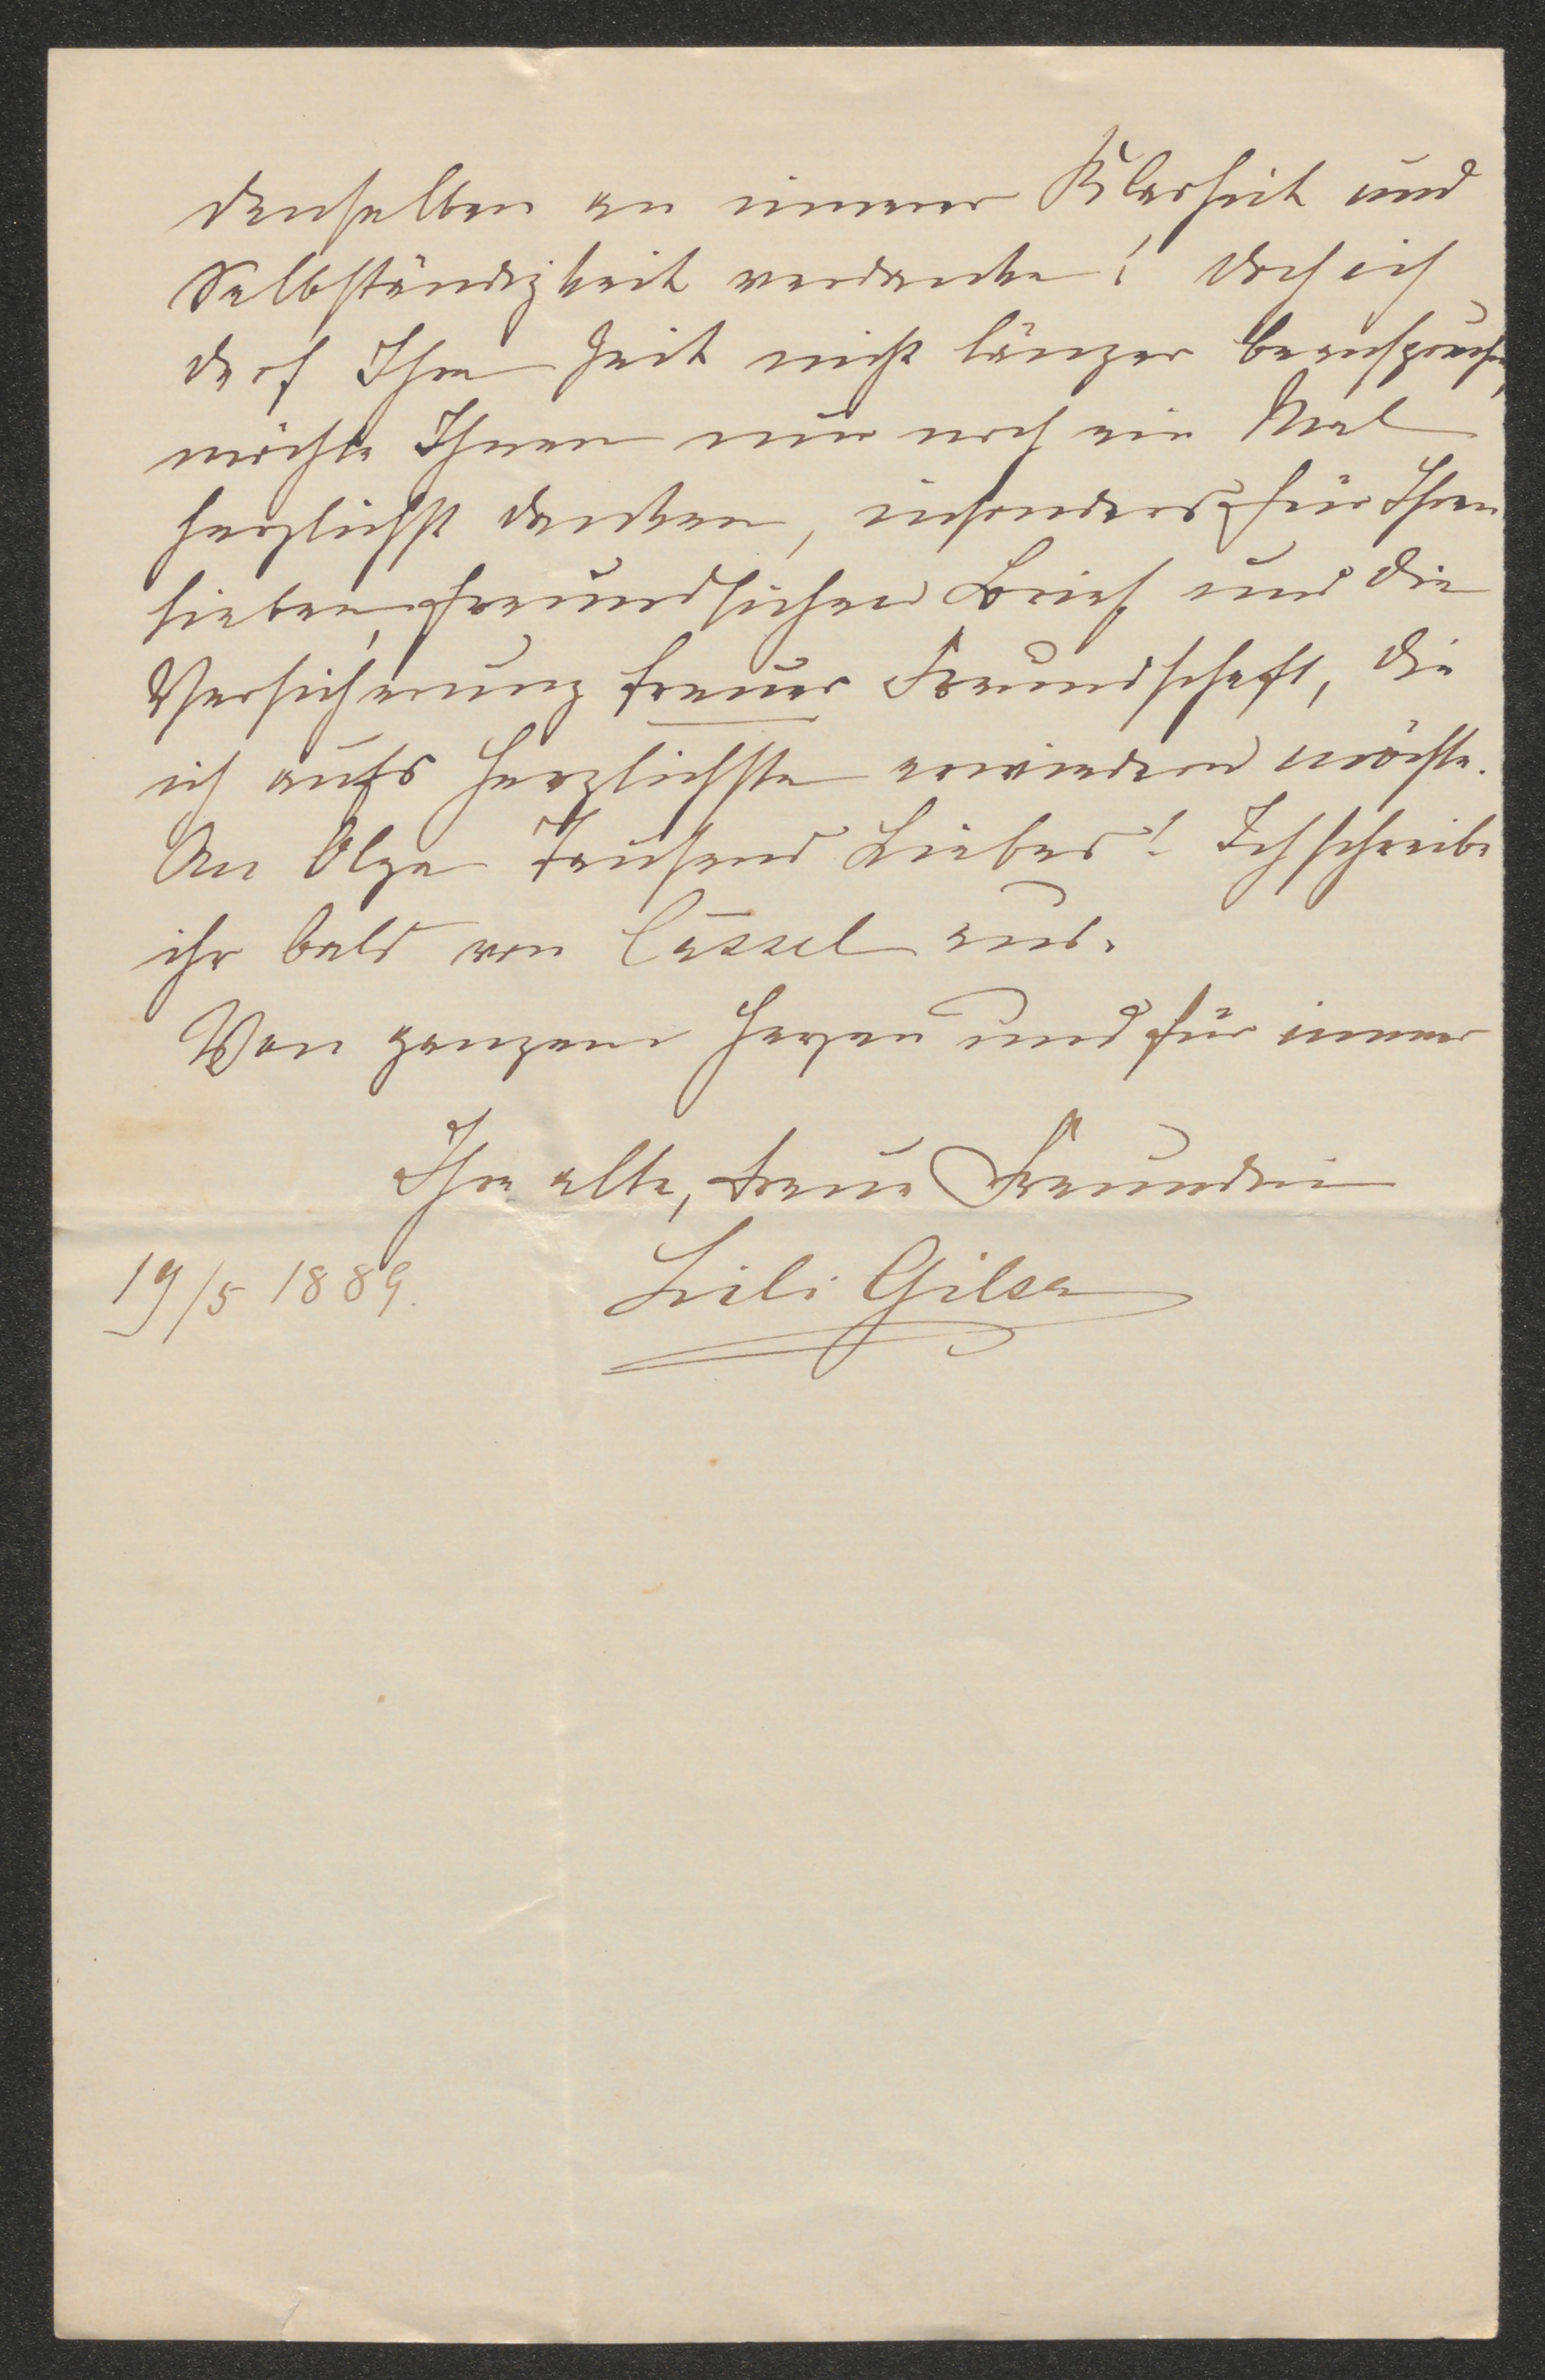 denselben an innerer Klarheit und
Selbständigkeit verdanke! Doch ich
darf Ihre Zeit nicht länger beanspruchen,
möchte Ihnen nur noch ein Mal
herzlichst danken, insonders für Ihren
lieben, freundlichen Brief und die
Versicherung treuer Freundschaft, die
ich aufs Herzlichste erwiedern möchte.
An Olga Tausend Liebes! Ich schreibe
ihr bald von Cassel aus.
Von ganzem Herzen und für immer
Ihre alte, treue Freundin
19/5 1889. Lili Gilsa